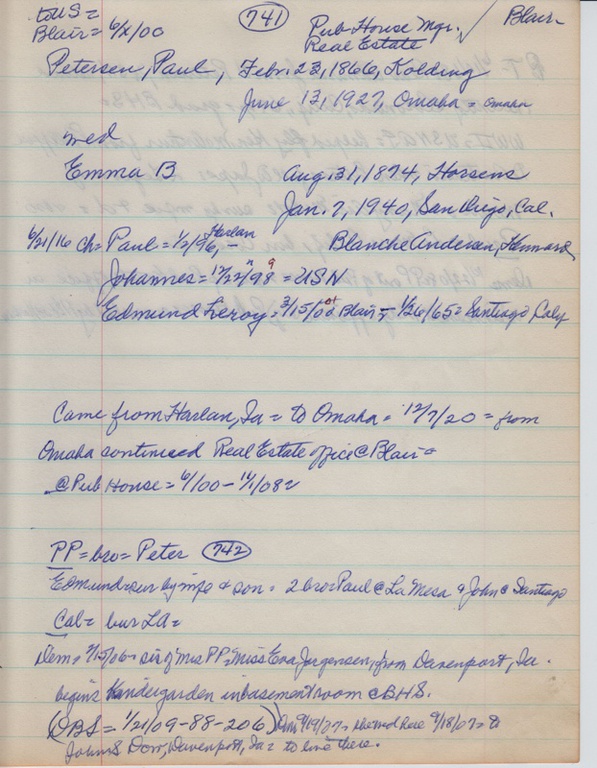 toUS =
Blair = 6/2/00
741
Pub House Mgr. / Blair
Real Estate
Petersen, Paul, Febr. 23, 1866, Kolding
June 13, 1927, Omaha = Omaha
wed
Emma B Aug. 31, 1874, Horsens
Jan. 7, 1940, San Diego, Cal.
6/21/16 ch = Paul = 1/2/96, Harlan Blanche Andersen, Kennard
Johannes = 12/22/98 9 = USN
Edmund Leroy = 3/15/00 Blair = 1/26/65 = Santiago, Caly
Came from Harlan, Ia = to Omaha = 12/7/20 = from
Omaha continued Real Estate office @ Blair
@ Pub House = 6/00 - 11/1/08
PP = bro = Peter 742
Edmund = sur by mpe & son = 2 bros Paul @ La Mesa & John @ Santiago
Cal = bur LA =
Dem = sis of Mrs PP = Miss Eva Jorgensen, from Davenport, Ia.
begins Kindergarden in basement room @ BHS.
(OBS = 1/21/09 - 88 - 206) 9/19/07 = 9/18/07 = to
John S Dorr, Davenport, Ia = to live there.